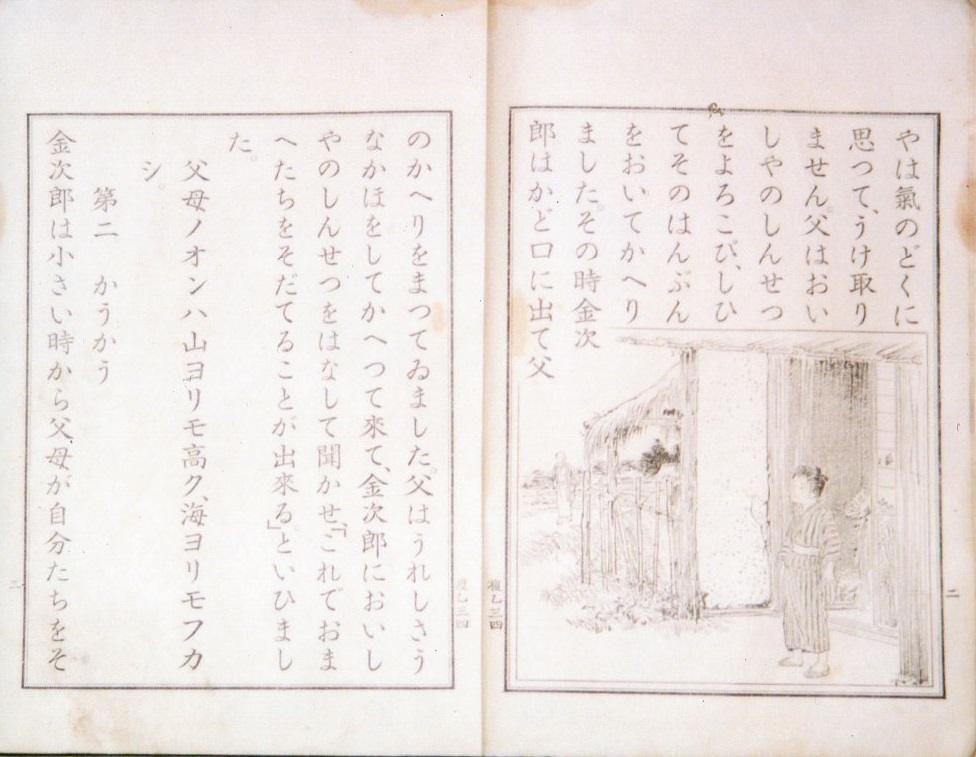 やは氣のどくに
思つて、うけ取り
ません。父はおい
しやのしんせつ
をよろこび、しひ
てそのはんぶん
をおいてかへり
ました。その時金次
郎はかど口に出て父
二
のかへりをまつてゐました。父はうれしさう
なかほをしてかへつて來て、金次郎においし
やのしんせつをはなして聞かせ、「これでおま
へたちをそだてることが出來る。」といひまし
た。
父母ノオンハ山ヨリモ高ク、海ヨリモフカ
シ。
第二 かうかう
金次郎は小さい時から父母が自分たちをそ
三